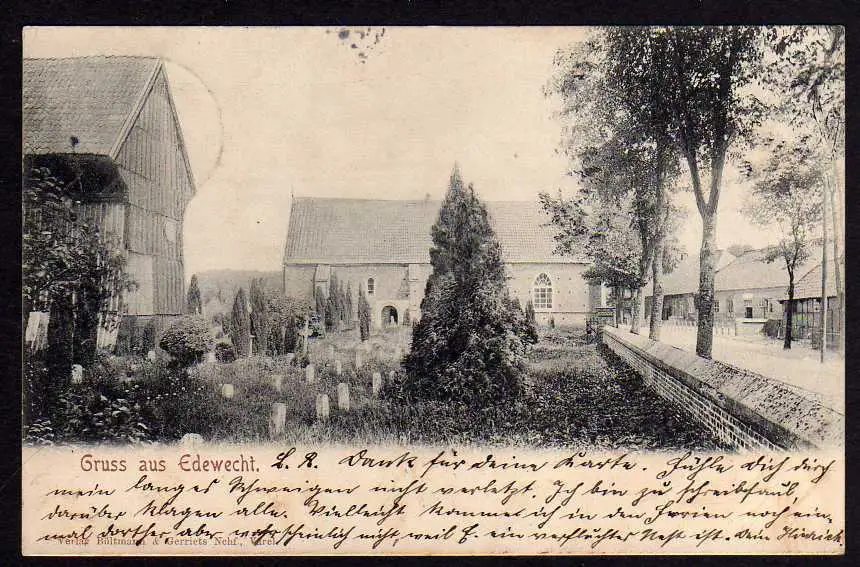 Gruss aus Edewecht. L. R. Dank für deine Karte. Fühle Dich durch
mein langes Schweigen nicht verletzt. Ich bin zu schreibfaul,
darüber klagen alle. Vielleicht komme ich in den Ferien noch ein-
mal dorther aber wahrscheinlich nicht, weil E. ein verfluchtes Nest ist. Dein Hinrich.
Verlag Bültmann & Gerriets Nchf., Varel.